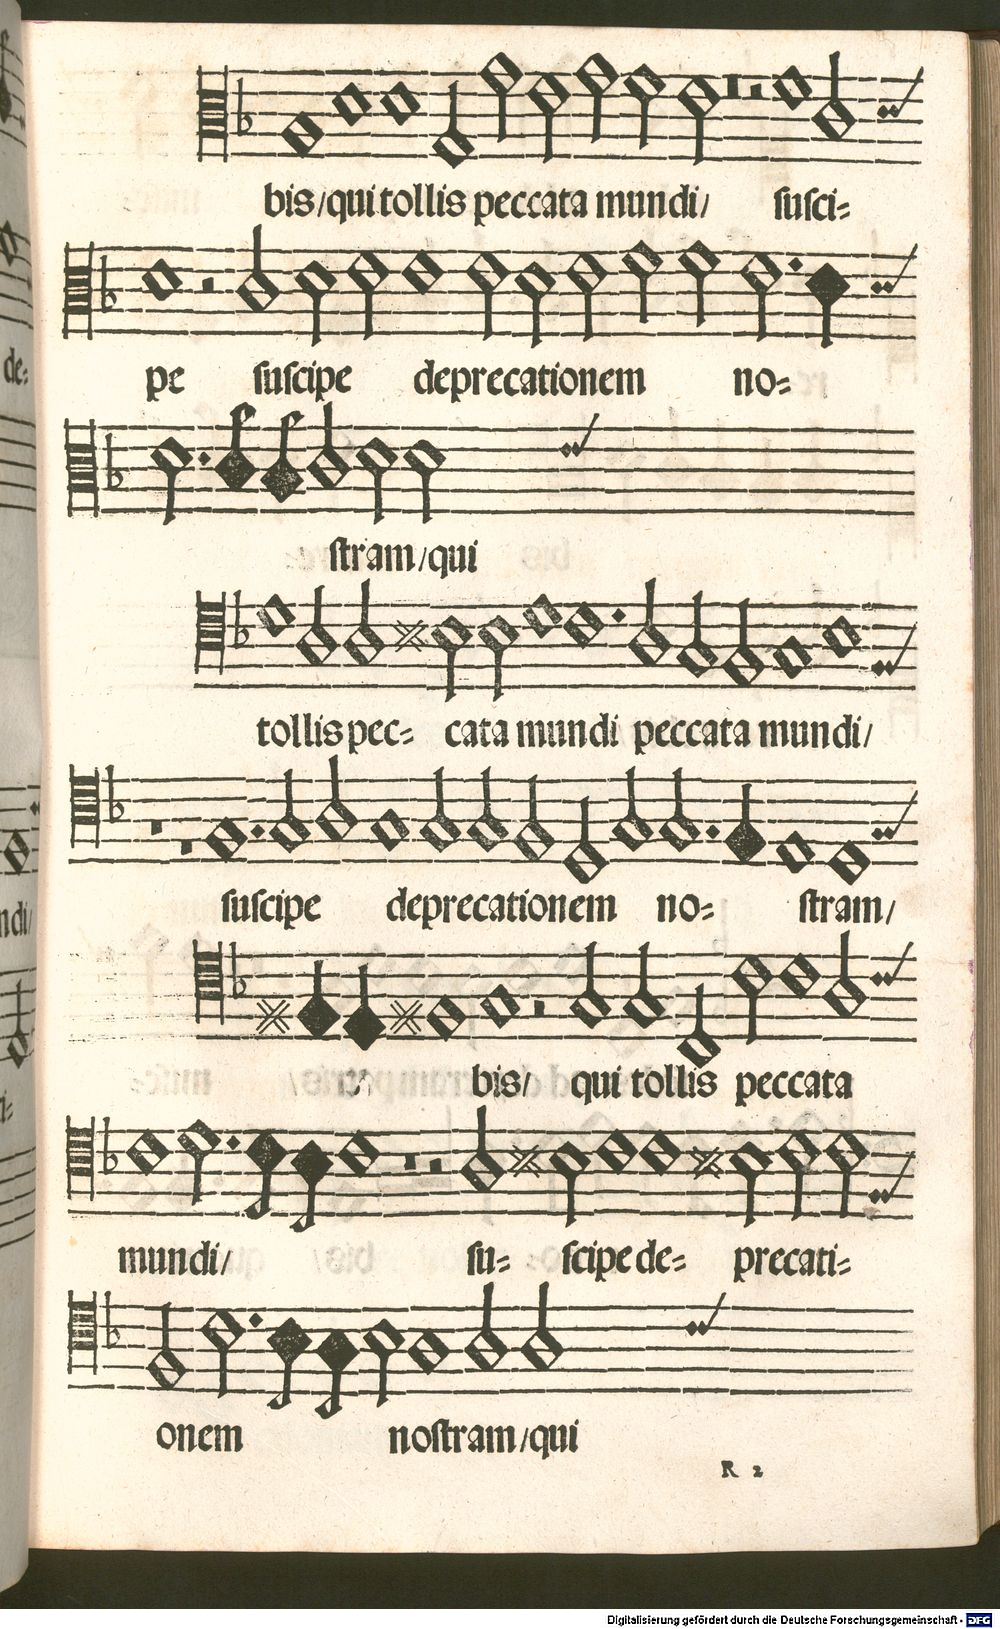 bis/qui tollis peccata mundi/ susci=
pe suscipe deprecationem no=
stram/qui
tollis pec= cata mundi peccata mundi/
suscipe deprecationem no= stram/
bis/ qui tollis peccata
mundi/ su= scipe de= precati=
onem nostram/qui
R 2
Digitalisierung gefördert durch die Deutsche Forschungsgemeinschaft - DFG